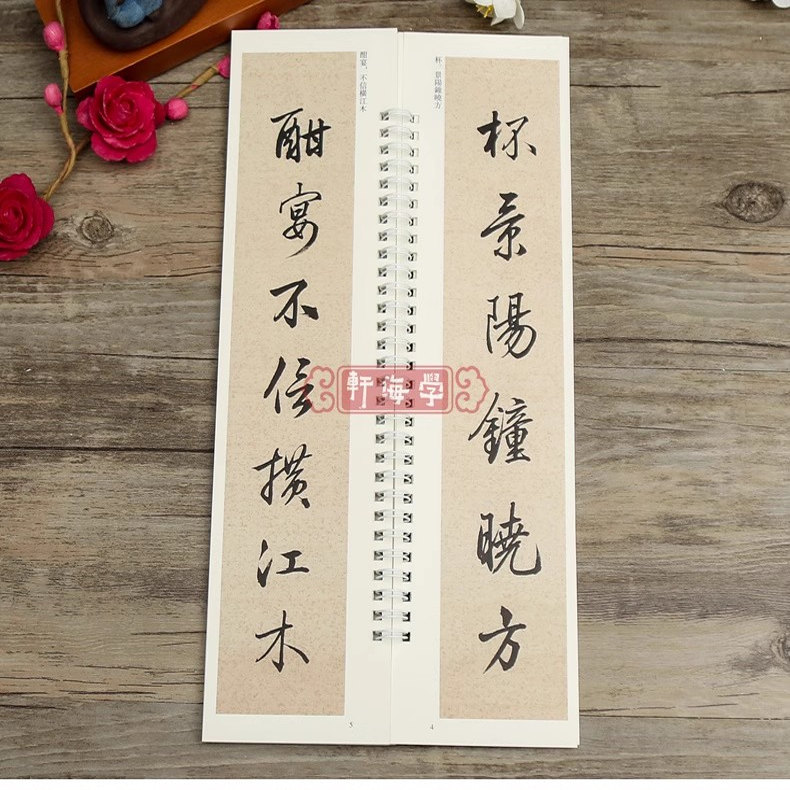 杯、景陽鐘曉方
杯景陽鐘曉方
4
酣宴、不信橫江木
酣宴不信横江木
5
軒海學